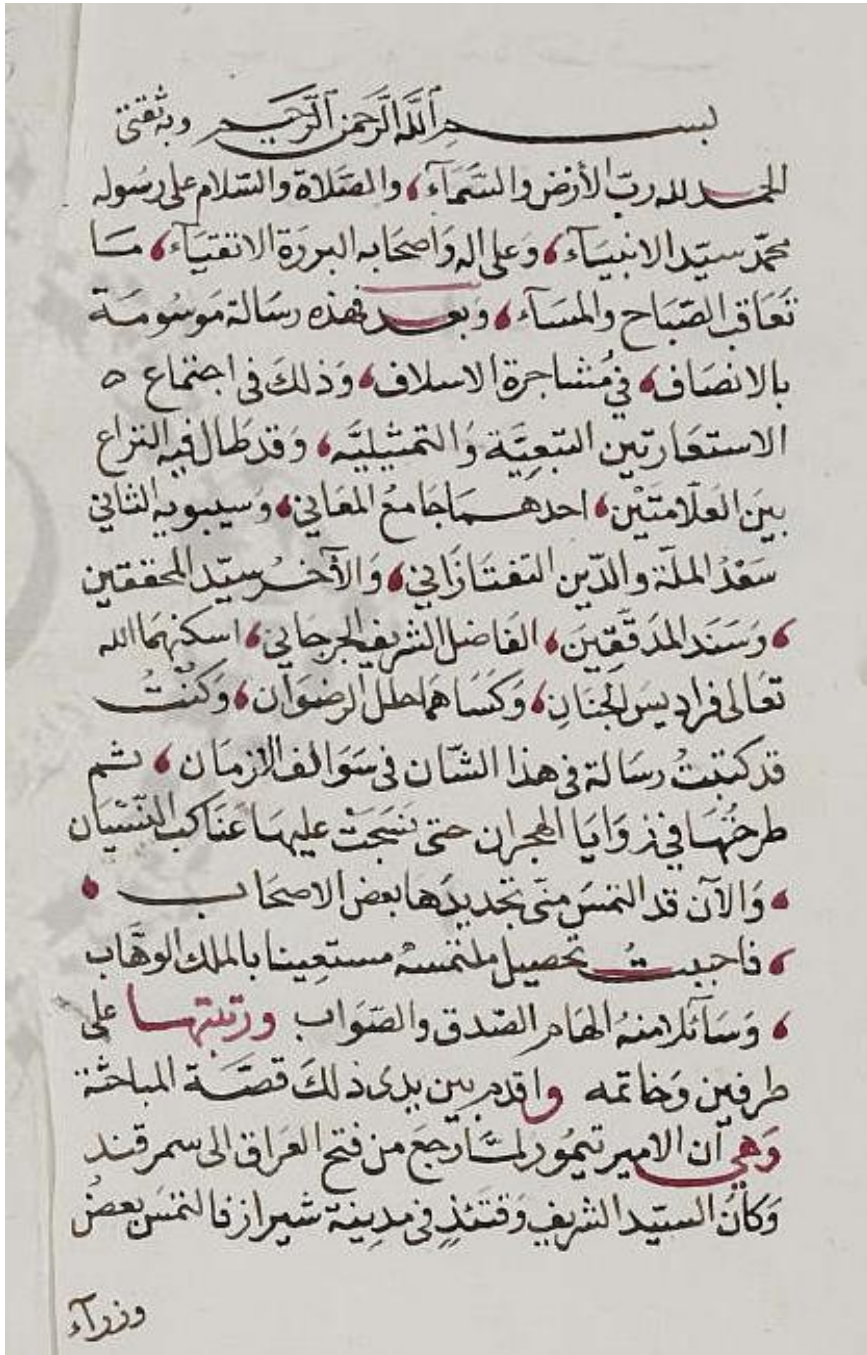 بسم الله الرحمن الرحيم وبه ثقتي
الحمد لله ربّ الأرض والسَّمَآء، والصَّلاة والسّلام على رسُوله
محمّد سيّد الانبيَآء، وَعلى اله وَاصحَابه البررَة الاتقيَآء، مَا
تعَاقب الصّبَاح والمسَآء، وَبعد فهذه رسَالة مَوسُومَة
بالانصَاف، في مُشاجرة الاسلاف، وَذلكَ في اجتماع ه
الاستعَارتين التبَعيَّة وَالتمثيليَّه، وَقد طَال فيه النزاع
بينَ العَلّامتَيْن، احدهمَا جَامعُ المعَاني، وَسيبويه الثاني
سَعْدُ الملّة والدّين التفتازَاني، وَالآخرُ سيّد المحققين
، وَسَنَد المدَقّقِينَ، الفَاضل الشريف الجرجَاني، اسكنهمَا الله
تعَالى فراديسَ الجنَانِ، وَكسَاهمَا حلل الرضوَان، وَكنْتُ
قد كتبتُ رسَالة في هذا الشّان في سَوَالف الازمَان، ثم
طرحتُهَا في زوَايَا الهجران حتى نسَجَتْ عليهَا عنَاكب النّسْيَان
، وَالآن قد التمسَ منّي تجديدَها بعض الاصحَاب ،
، فاجبتُ تحصيل ملتمسه مستعِينا بالملك الوهَّاب
، وَسَآئلا منهُ الهَام الصّدق والصّوَاب ورتبتها على
طرفين وَخاتمه واقدم بين يدى ذلكَ قصَّة المباحثة
وَهي أن الامير تيمُور لمَّا رجعَ من فتح العرَاق الى سمرقند
وَكانَ السيّد الشريف وَقتئذٍ في مدِينة شيراز فالتمسَ بعضُ
وزرآء